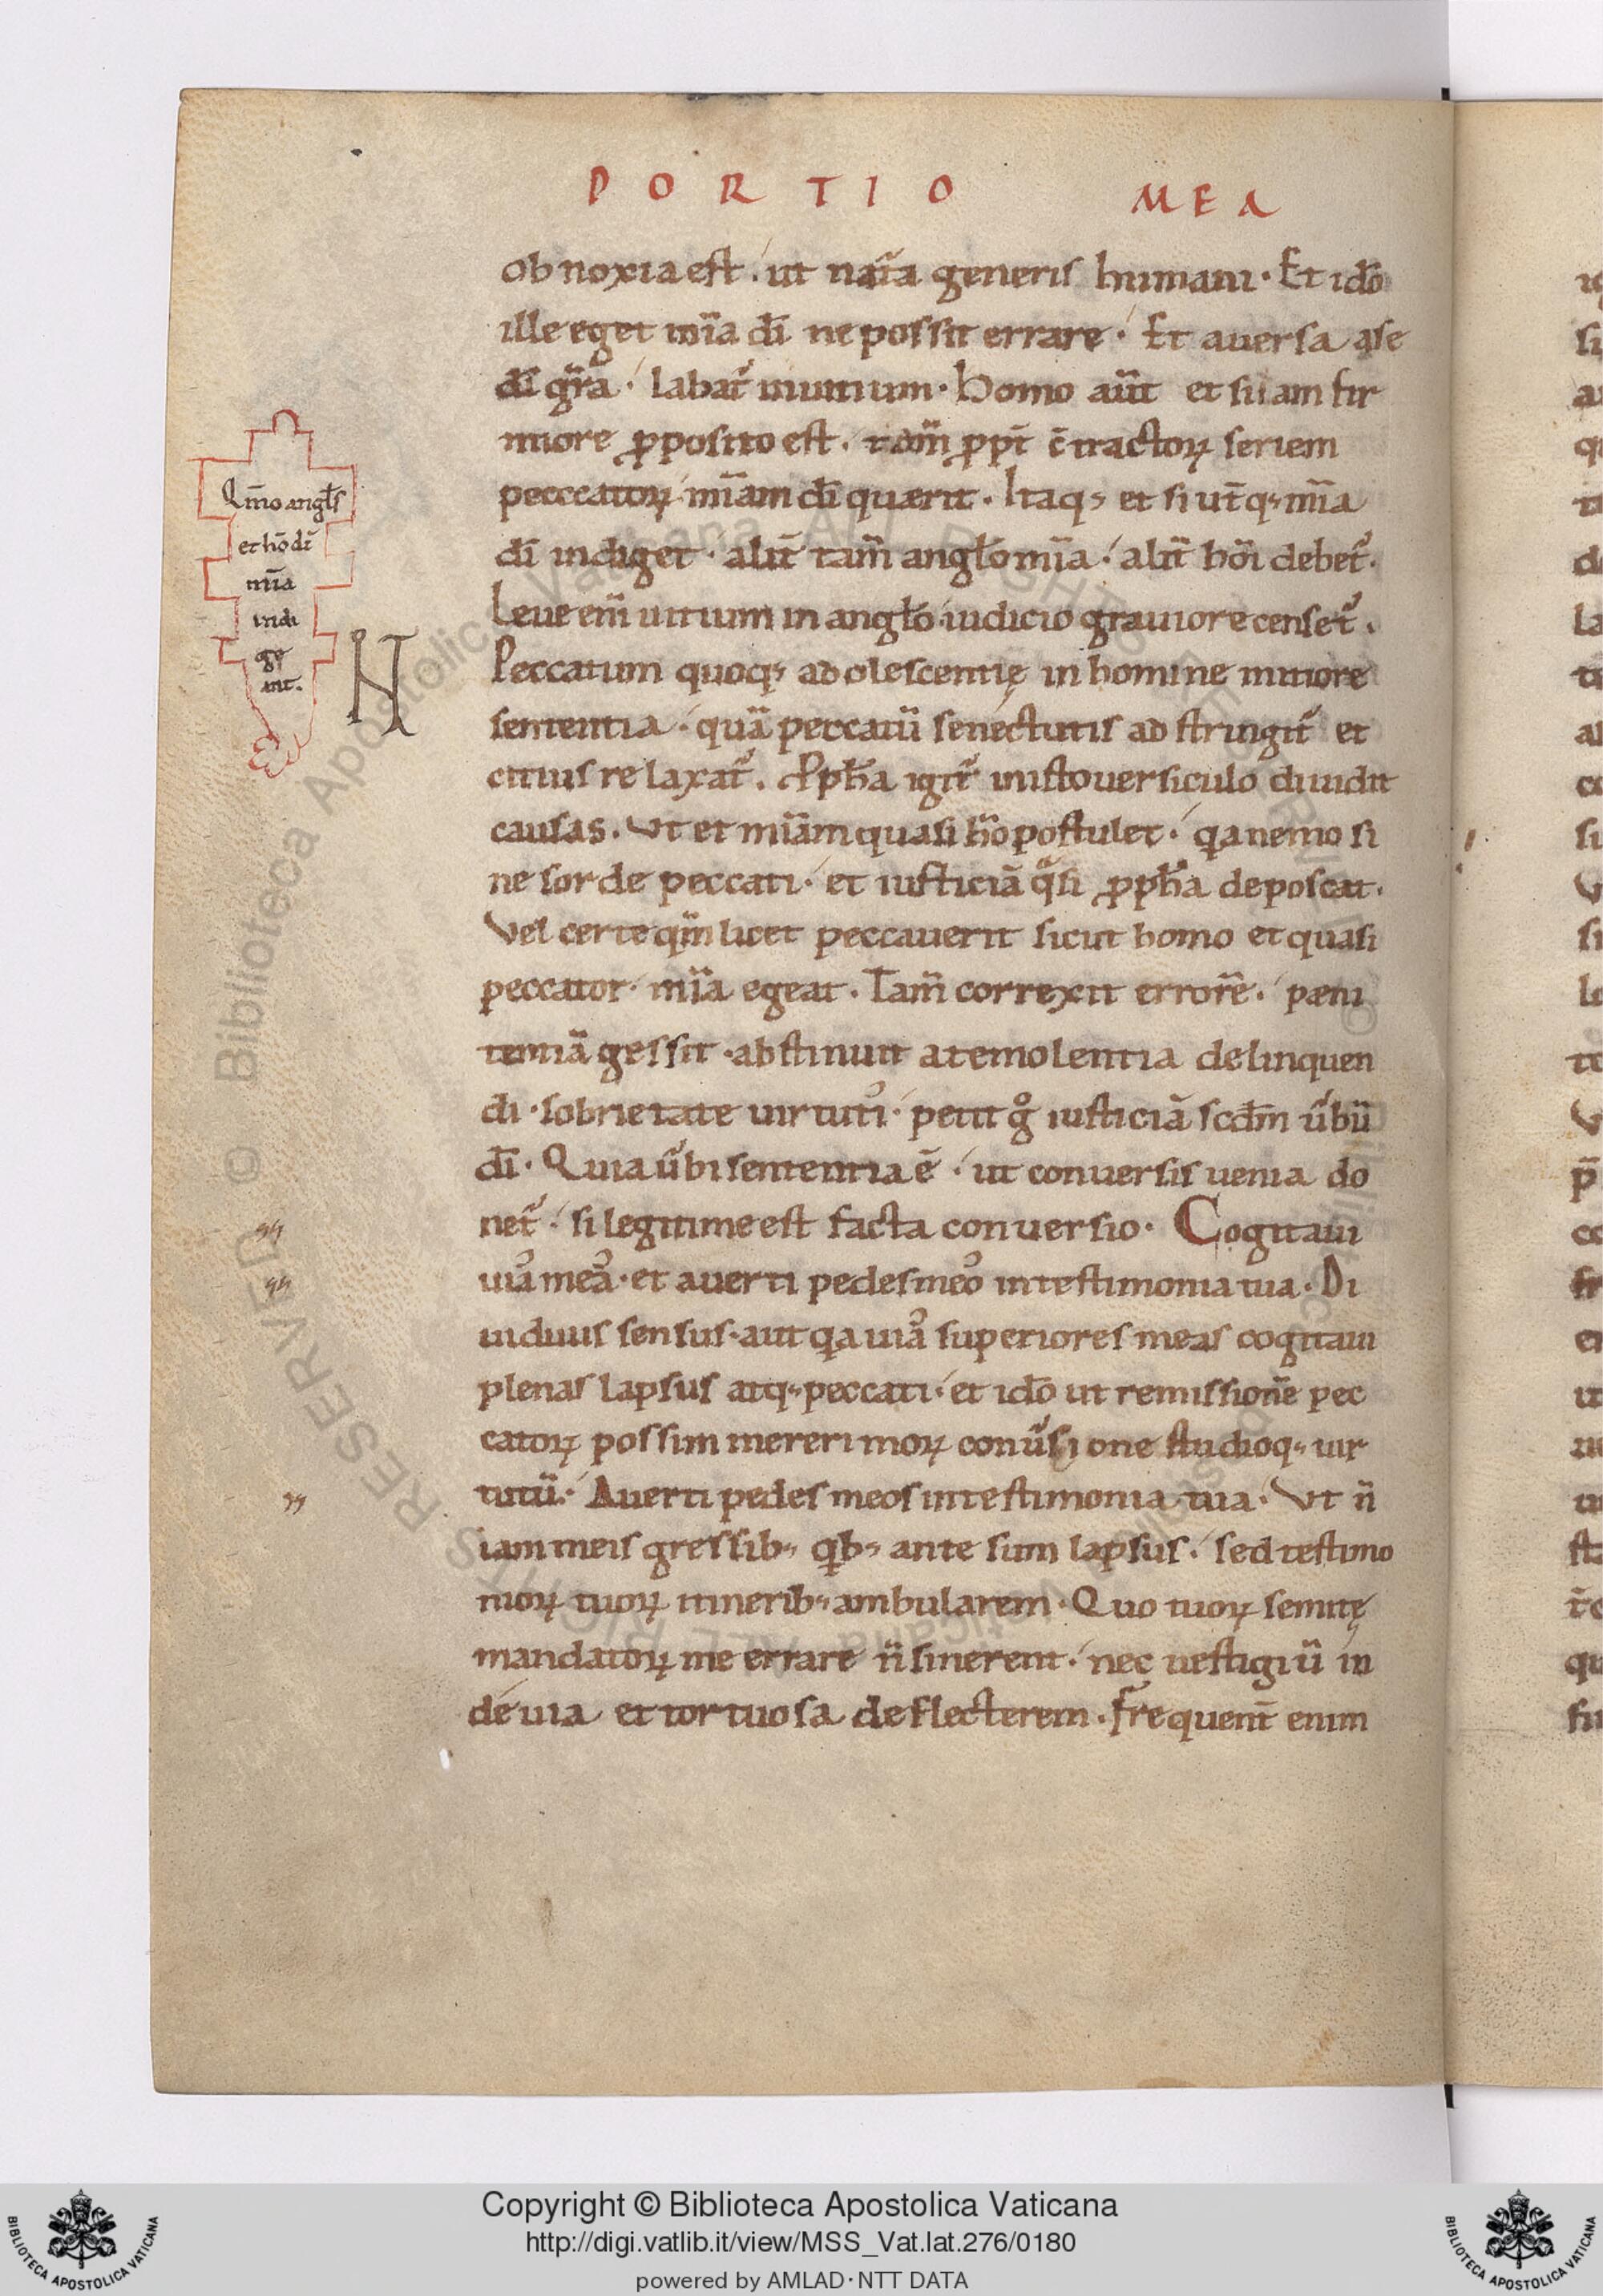 PORTIO MEA
obnoxia est. ut nat̄a generis humani. Et idō
ille eget mīa dī ne possit errare. Et auersa a se
dī gr̄a. labat᷑ in uitium. Homo aūt et si iam fir
miore ꝓposito est. tam̄ ꝓpt̄ c̄tractoꝝ seriem
pecccatoꝝ mīam dī quaerit. Itaq; et si ut̄q; mīa
dī indiget. alit̄ tam̄ angło mīa. alit̄ hōi debet᷑.
Leue em̄ uitium in angło iudicio grauiore censet᷑.
Peccatum quoq; adolescentię in homine mitiore
sententia. quā peccatū senectutis adstringit᷑ et
citius relaxat᷑. Ꝓpħa igit᷑ in isto uersiculo diuidit
causas. Vt et mīam quasi hō postulet. qa nemo si
ne sorde peccati. et iusticiā qͣsi ꝓpħa deposcat.
Vel certe qm̄ licet peccauerit sicut homo et quasi
peccator mīa egeat. Tam̄ correxit errorē. paeni
tentiā gessit. abstinuit a temolentia delinquen
di. sobrietate uirtuti᷒. petit gͦ iusticiā scdm̄ u᷑bū
dī. Quia u᷑bi sententia ē. ut conuersis uenia do
net᷑. si legitime est facta conuersio. Cogitaui
uia᷒ mea᷒. et auerti pedes meo᷒ in testimonia tua. Di
uiduus sensus. aut qa uia᷒ superiores meas cogitaui
plenas lapsus atq; peccati. et idō ut remissionē pec
catoꝝ possim mereri moꝝ conu᷑sione studioq; uir
tutū. Auerti pedes meos in testimonia tua. Vt n̄
iam meis gressib; qb; ante sum lapsus. sed testimo
nioꝝ tuoꝝ itinerib; ambularem. Quo tuoꝝ semitę
mandatoꝝ me errare n̄ sinerent. nec uestigiū in
deuia et tortuosa deflecterem. Frequent̄ enim
Qm̄o angłs
et hō dī
mīa
indi
ge
ant.
N
Copyright © Biblioteca Apostolica Vaticana
http://digi.vatlib.it/view/MSS_Vat.lat.276/0180
powered by AMLAD·NTT DATA
BIBLIOTECA APOSTOLICA VATICANA
BIBLIOTECA APOSTOLICA VATICANA